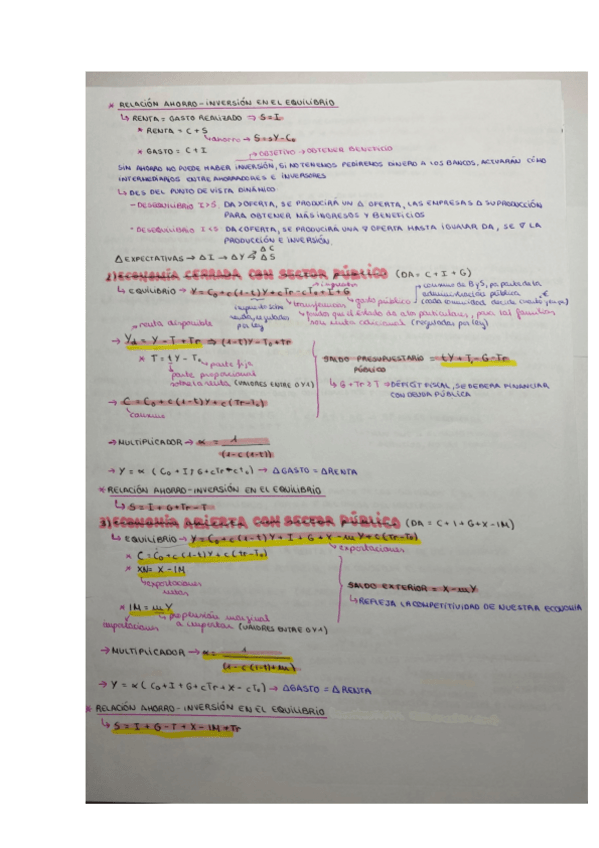 * RELACIÓN AHORRO-INVERSIÓN EN EL EQUILIBRIO
↳ RENTA = GASTO REALIZADO ⇒ S=I
* RENTA = C + S
↳ ahorro → S=sY-C₀
* GASTO = C + I → OBJETIVO → OBTENER BENEFICIO
SIN AHORRO NO PUEDE HABER INVERSIÓN, SI NO TENEMOS PEDIREMOS DINERO A LOS BANCOS, ACTUARÁN CÓMO
INTERMEDIARIOS ENTRE AHORRADORES E INVERSORES
↳ DES DEL PUNTO DE VISTA DINÁMICO
- DESEQUILIBRIO I>S: DA>OFERTA, SE PRODUCIRÁ UN Δ OFERTA, LAS EMPRESAS Δ SU PRODUCCIÓN
PARA OBTENER MÁS INGRESOS Y BENEFICIOS
- DESEQUILIBRIO I<S: DA<OFERTA, SE PRODUCIRÁ UNA ∇ OFERTA HASTA IGUALAR DA, SE ∇ LA
PRODUCCIÓN E INVERSIÓN.
Δ EXPECTATIVAS → Δ I → Δ Y → Δ C
Δ S
2) ECONOMÍA CERRADA CON SECTOR PÚBLICO (DA = C + I + G)
↳ EQUILIBRIO → Y = C₀ + c (1-t) Y + cTr - cT₀ + I + G
consumo de B y S, por parte de la
administración pública
transferencias
gasto público
renta disponible
→ Yd = Y - T + Tr ⇒ (1-t)Y - T₀ + Tr
* T = tY - T₀ → parte fija
parte proporcional
sobre la renta (VALORES ENTRE 0 Y 1)
SALDO PRESUPUESTARIO = tY + T₀ - G - Tr
PÚBLICO
↳ G + Tr ≥ T → DÉFICIT FISCAL, SE DEBERÁ FINANCIAR
CON DEUDA PÚBLICA
→ C = C₀ + c (1-t) Y + c (Tr - T₀)
consumo
→ MULTIPLICADOR → α = 1
(1-c(1-t))
→ Y = α ( C₀ + I + G + cTr - cT₀ ) → Δ GASTO = Δ RENTA
* RELACIÓN AHORRO-INVERSIÓN EN EL EQUILIBRIO
↳ S = I + G + Tr - T
3) ECONOMÍA ABIERTA CON SECTOR PÚBLICO (DA = C + I + G + X - IM)
↳ EQUILIBRIO → Y = C₀ + c (1-t) Y + I + G + X - mY + c (Tr-T₀)
exportaciones
* C = C₀ + c (1-t) Y + c (Tr-T₀)
* XN = X - IM
↳ exportaciones
netas
SALDO EXTERIOR = X - mY
↳ REFLEJA LA COMPETITIVIDAD DE NUESTRA ECONOMÍA
* IM = mY
propensión marginal
importaciones a importar (VALORES ENTRE 0 Y 1)
→ MULTIPLICADOR → α = 1
(1-c(1-t)+m)
→ Y = α ( C₀ + I + G + cTr + X - cT₀ ) → Δ GASTO = Δ RENTA
* RELACIÓN AHORRO-INVERSIÓN EN EL EQUILIBRIO
↳ S = I + G - T + X - IM + Tr